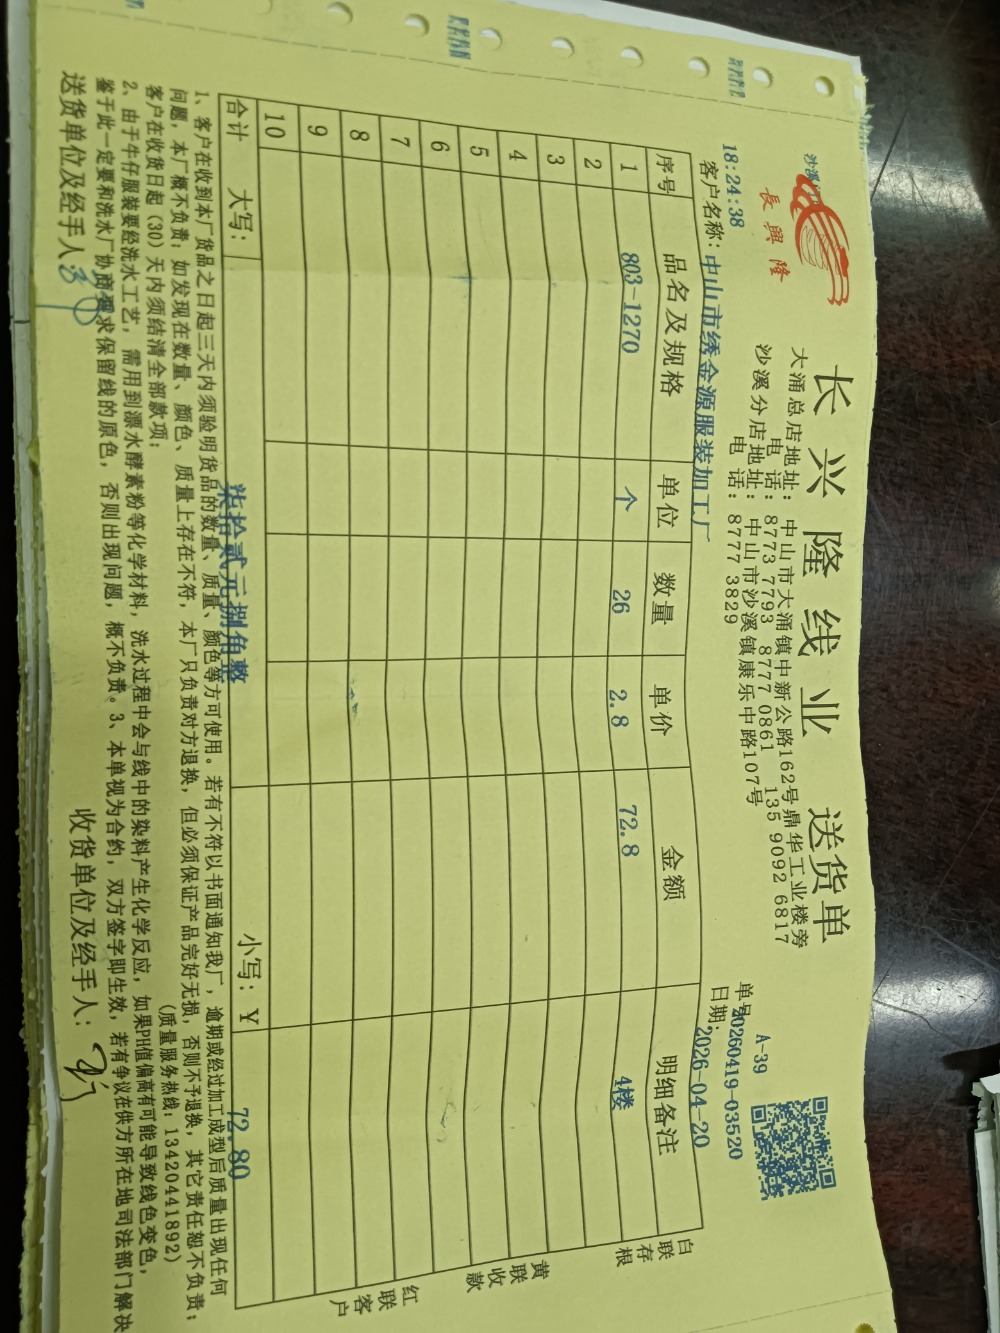 長興隆
长兴隆线业 送货单
大涌总店地址: 中山市大涌镇中新公路162号鼎华工业楼旁
电 话: 8773 7793 8777 0861 135 9092 6817
沙溪分店地址: 中山市沙溪镇康乐中路107号
电 话: 8777 3829
A-39
18:24:38
单号: 20260419-03520
客户名称: 中山市绣金源服装加工厂
日期: 2026-04-20
序号 品名及规格 单位 数量 单价 金额 明细备注
1 803-1270 个 26 2.8 72.8 4楼
2
3
4
5
6
7
8
9
10
合计 大写: 柒拾贰元捌角整 小写: Y 72.80
白联存根
黄联收款
红联客户
1、客户在收到本厂货品之日起三天内须验明货品的数量、质量、颜色等方可使用。若有不符以书面通知我厂, 逾期或经过加工成型后质量出现任何
问题, 本厂概不负责; 如发现在数量、颜色、质量上存在不符, 本厂只负责对方退换, 但必须保证产品完好无损, 否则不予退换, 其它责任恕不负责;
客户在收货日起 (30) 天内须结清全部款项; (质量服务热线: 13420441892)
2、由于牛仔服装要经洗水工艺, 需用到漂水酵素粉等化学材料, 洗水过程中会与线中的染料产生化学反应, 如果PH值偏高有可能导致线色变色,
鉴于此一定要和洗水厂协商要求保留线的原色, 否则出现问题, 概不负责。3、本单视为合约, 双方签字即生效, 若有争议在供方所在地司法部门解决
送货单位及经手人: 收货单位及经手人: